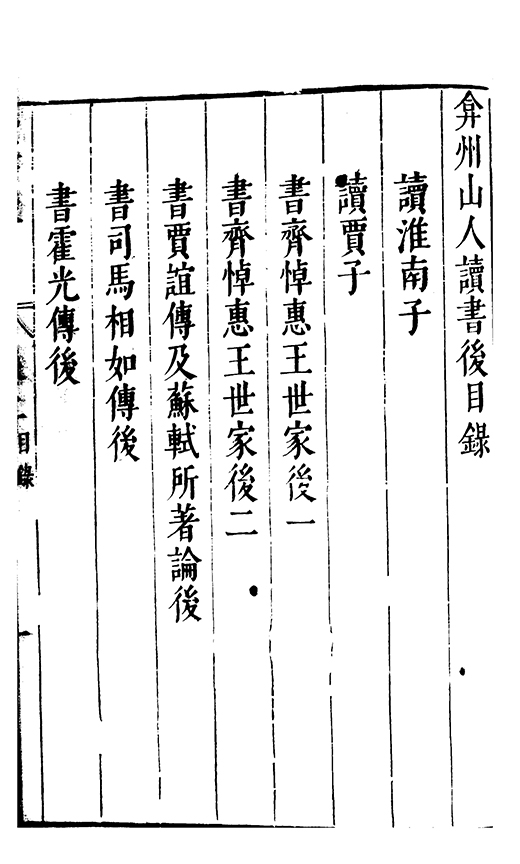 弇州山人讀書後目錄
讀淮南子
讀賈子
書齊悼惠王世家後一
書齊悼惠王世家後二
書賈誼傳及蘇軾所著論後
書司馬相如傳後
書霍光傳後
目錄
一